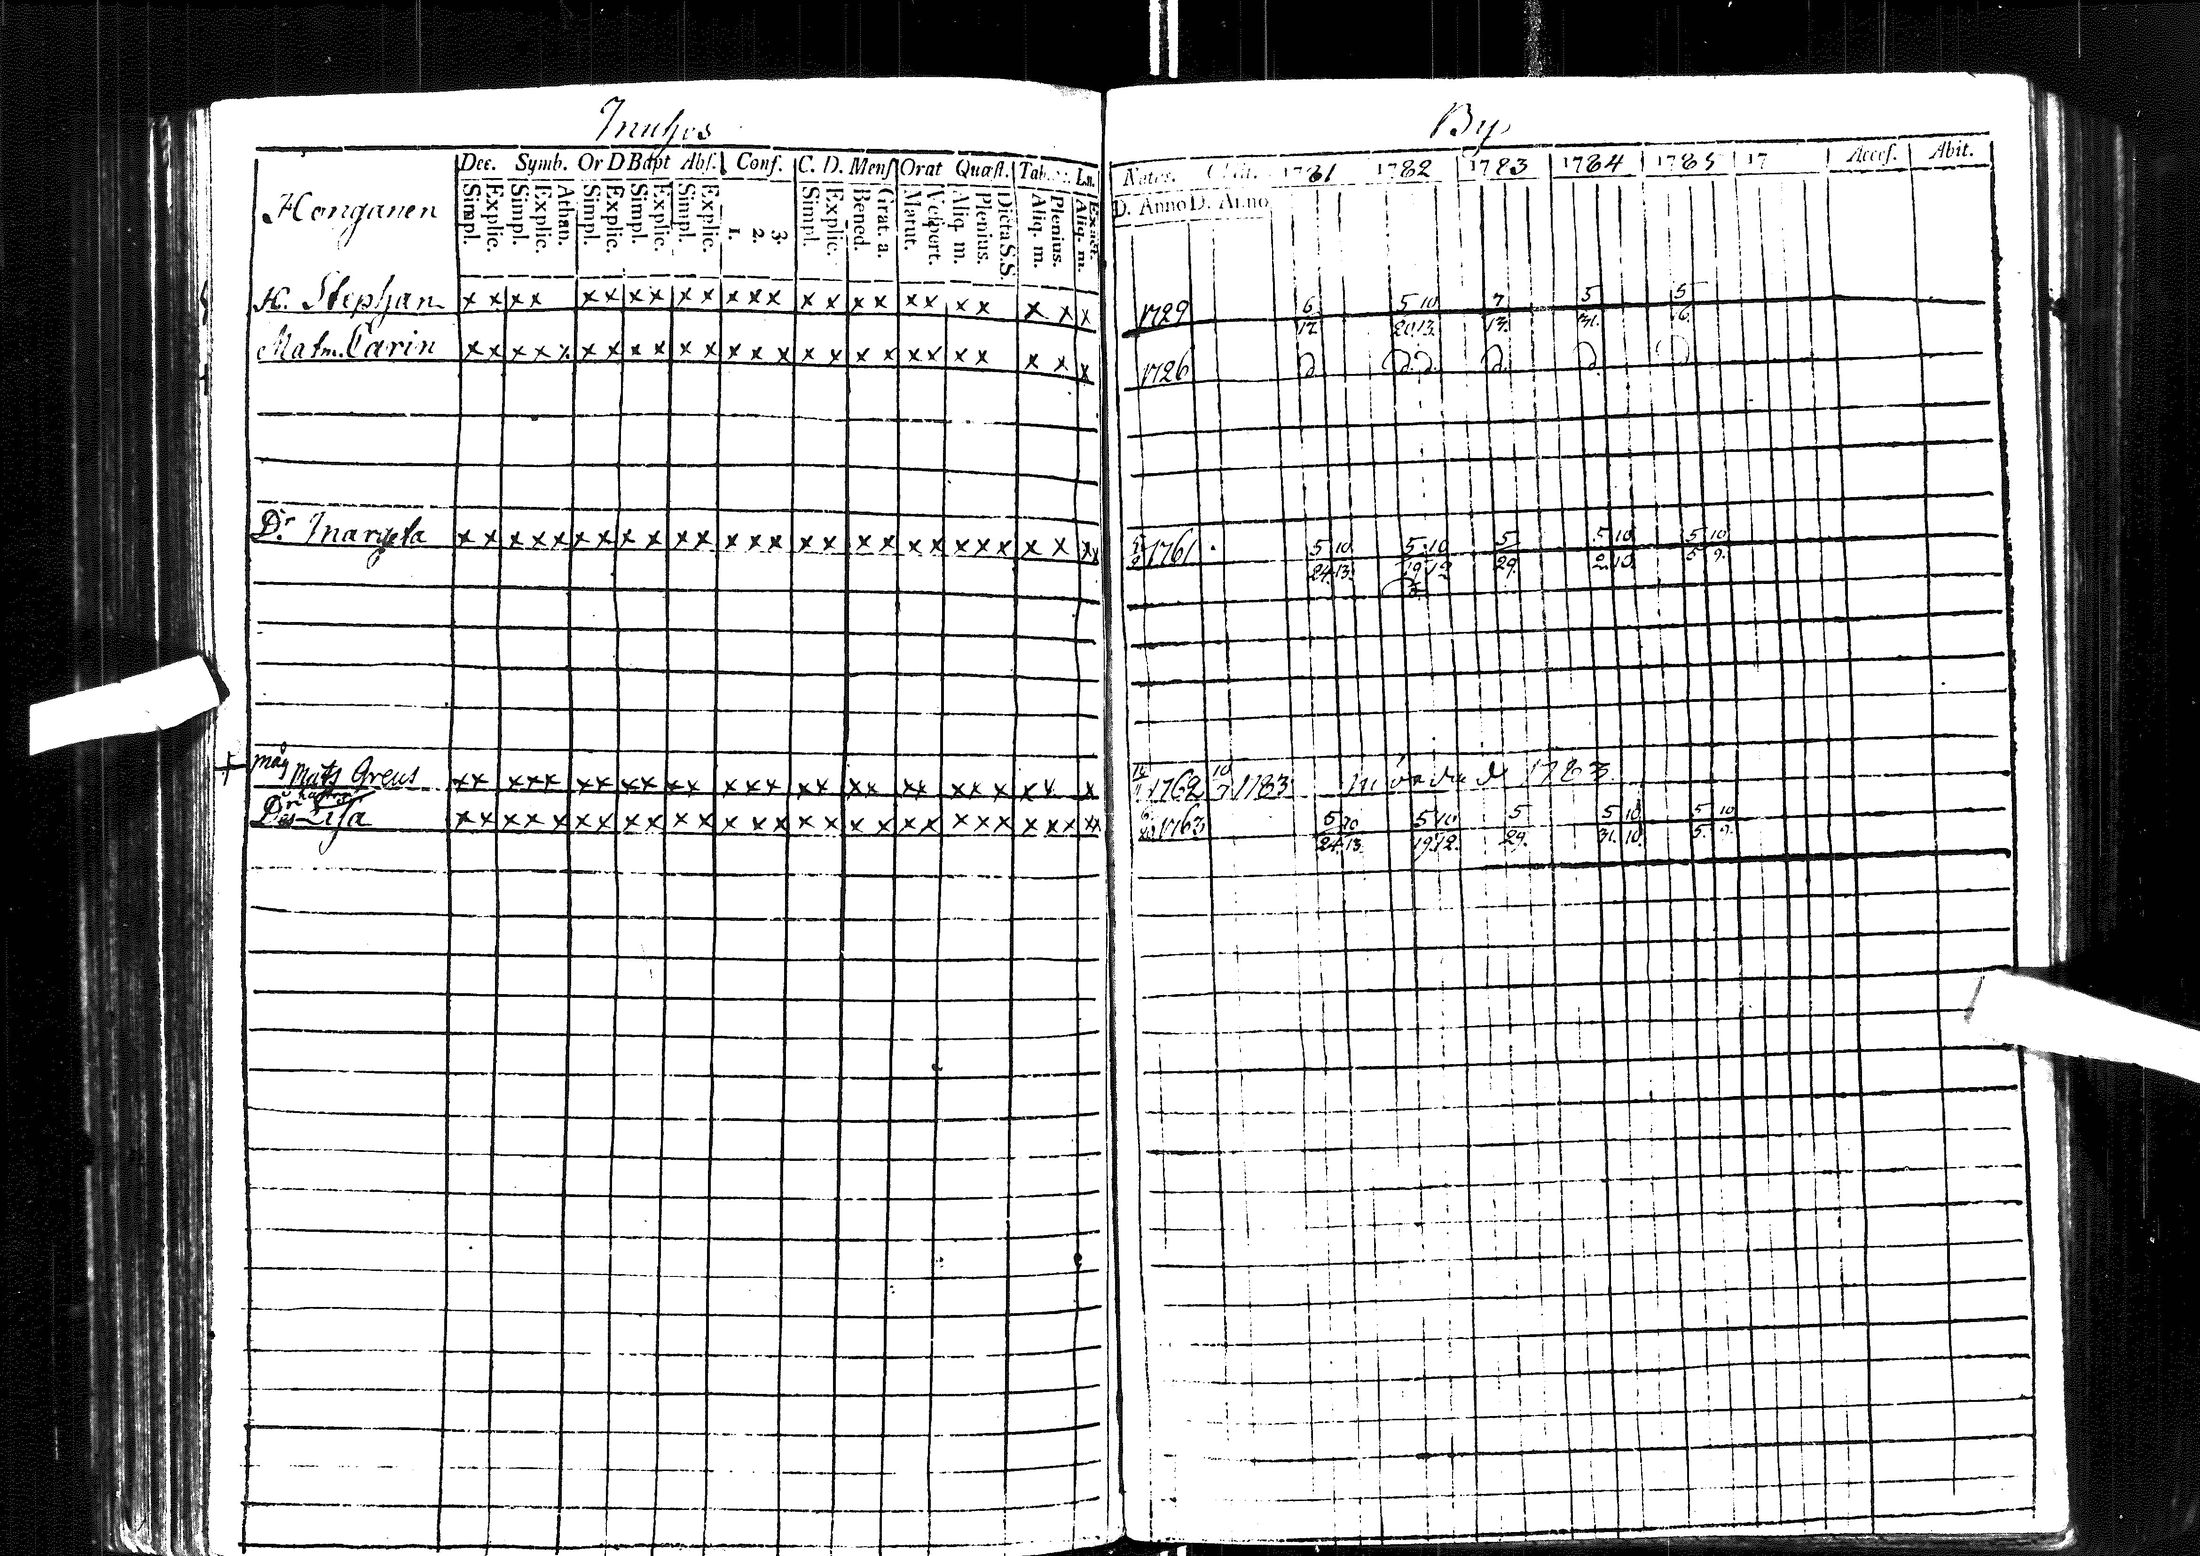 Jnuhos By
Dec. Symb. Or D Bapt Abs. Conf. C. D. Mens Orat Quæst. Tab. Ln.
Simpl. Explic. Simpl. Explic. Athan. Simpl. Explic. Simpl. Explic. Simpl. Explic. 1. 2. 3. Simpl. Explic. Bened. Grat. a. Matut. Vespert. Aliq. m. Plenius. Dicta S.S. Aliq. m. Plenius. Exact. Aliq. m.
Natus. 1781 1782 1783 1784 1785 17 Access. Abit.
D. Anno D. Anno
Honganen
H. Stephan x x x x x x x x x x x x x x x x x x x x x x x x x 1729 6/12 5/20 10/13 7/13 5/31 5/6
Matm. Carin x x x x x x x x x x x x x x x x x x x x x x x x x x 1726 D. D. D. D. D. D.
Dr. Margeta x x x x x x x x x x x x x x x x x x x x x x x x x x x 1761 5/24 10/13 5/19 10/12 5/29 5/2 10/10 5/5 10/9
måg Mats Greus x x x x x x x x x x x x x x x x x x x x x x x x x x 1762 10/7 1783 1783
Dr Lisa x x x x x x x x x x x x x x x x x x x x x x x x x x x x 1763 5/24 10/13 5/19 10/12 5/29 5/31 10/10 5/5 10/9